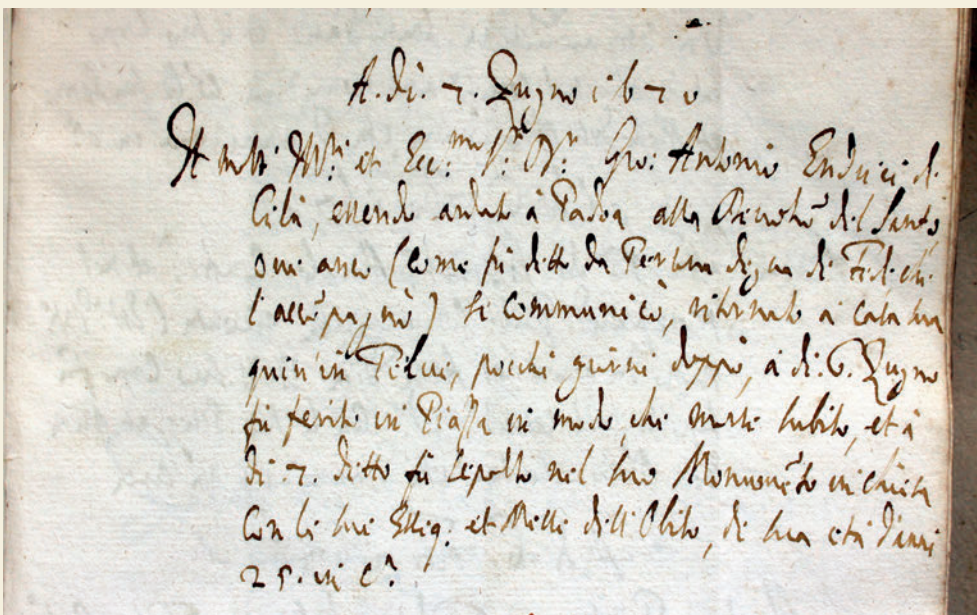 A. dì. 7. Zugno 1670
Il molto Ill.re et Ecc.mo S.r D.r Gio: Antonio Endrici di
Cilà, essendo andato à Padoa alla Devotiō del Santo,
oue anco (come fù detto da Persona degna di Fede, che
l'accōpagnò) si communicò, ritornato à casa sua
quiui in Telue, pochi giorni doppò, à di. 6. Zugno
fù ferito in Piazza in modo, che morse subito, et à
di. 7. ditto fù sepolto nel suo Monumēto in chiesa
Con le sue Esseq. et Messe dell'Obito, di sua età d'anni
25. in c.a